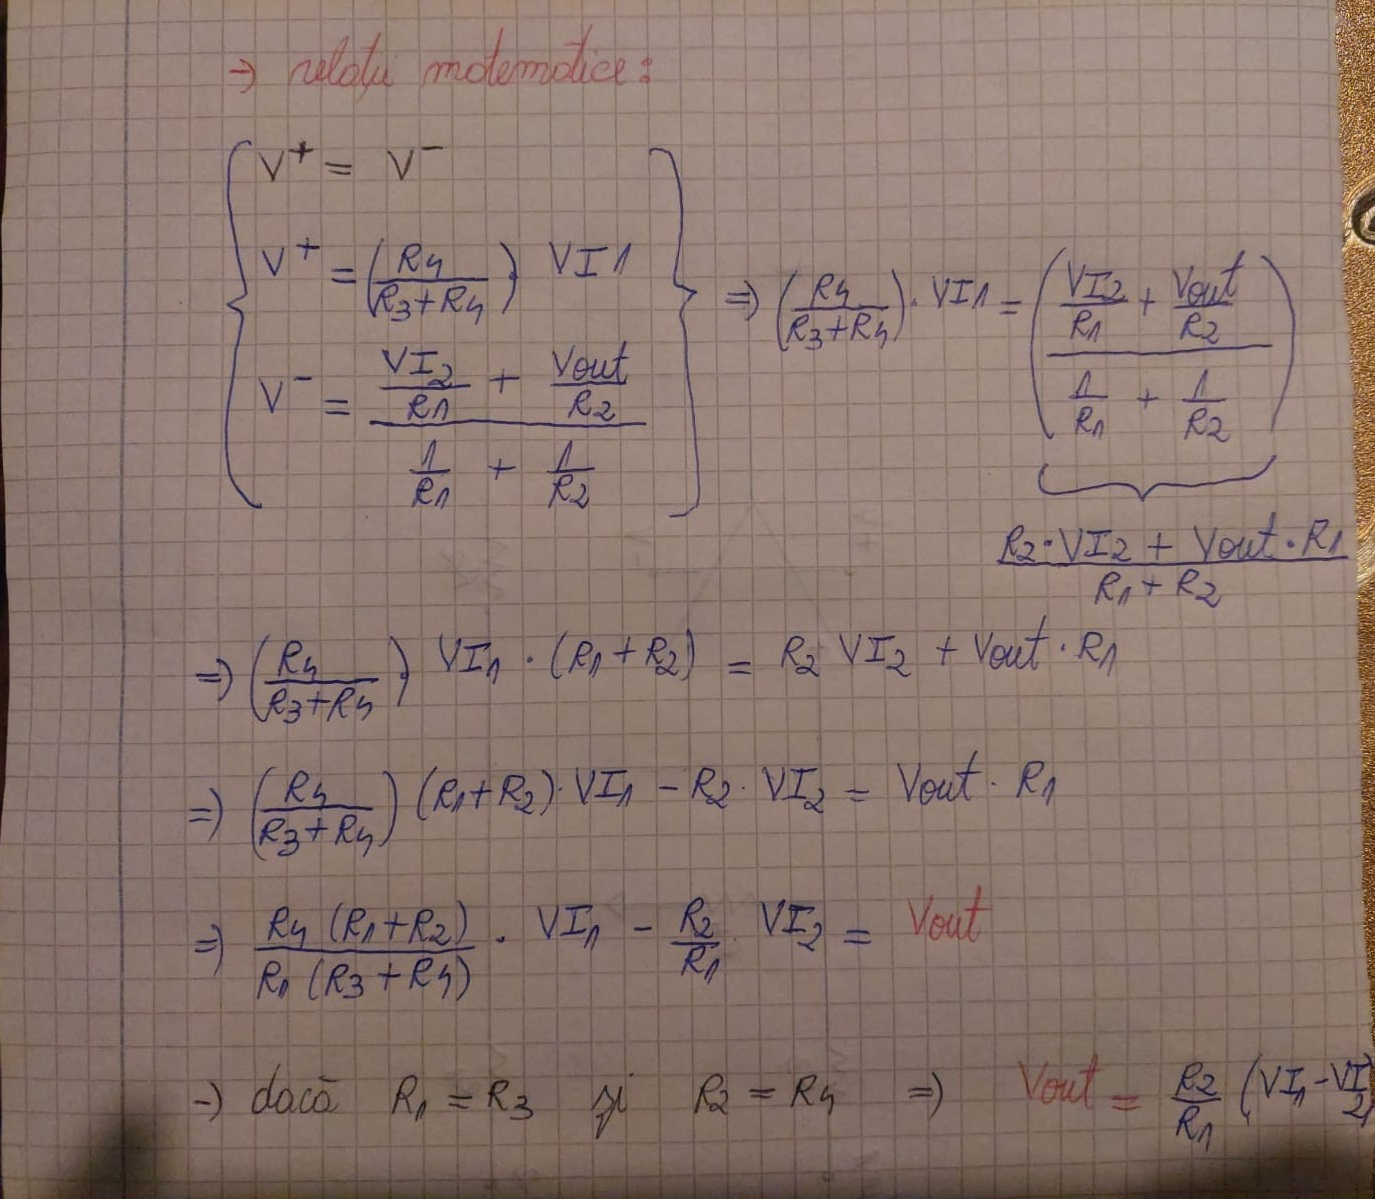 → relații matematice:
V⁺ = V⁻
V⁺ = (R4/(R3+R4)) · VI1
V⁻ = (VI2/R1 + Vout/R2)/(1/R1 + 1/R2)
⇒ (R4/(R3+R4)) · VI1 = ((VI2/R1 + Vout/R2)/(1/R1 + 1/R2))
(R2·VI2 + Vout·R1)/(R1+R2)
⇒ (R4/(R3+R4)) · VI1 · (R1+R2) = R2 VI2 + Vout · R1
⇒ (R4/(R3+R4)) (R1+R2) · VI1 − R2 · VI2 = Vout · R1
⇒ R4 (R1+R2)/(R1 (R3+R4)) · VI1 − R2/R1 · VI2 = Vout
→ dacă R1 = R3 și R2 = R4 ⇒ Vout = R2/R1 (VI1 − VI2)